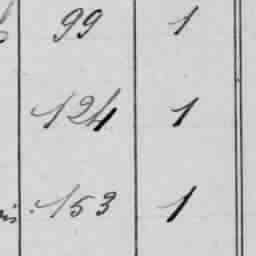 99 1
124 1
153 1